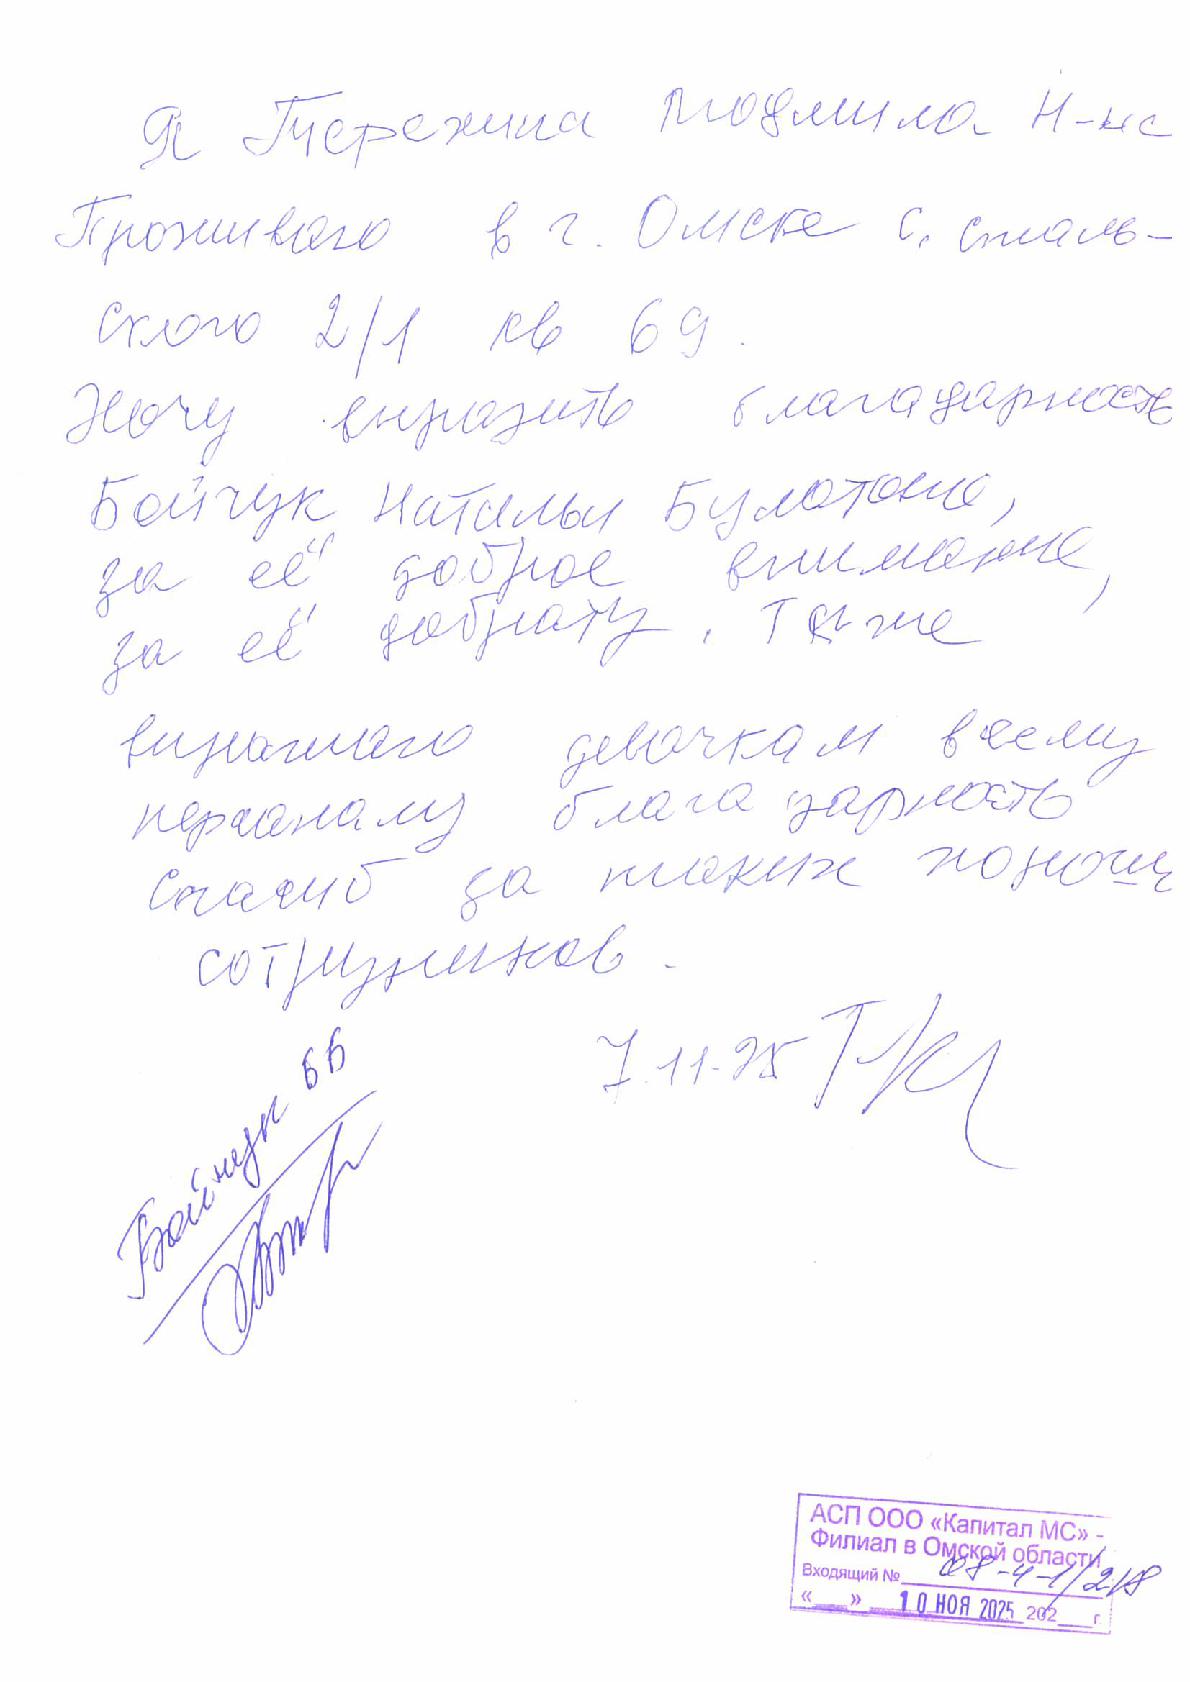 Я Терехина Людмила Н-на
Проживаю в г. Омске С. Сталь-
ского 2/1 кв 69.
Хочу выразить благадарность
Бойчук Натальи Булатовне,
за её доброе внимание,
за её добрату. Также
выражаю девочкам всему
персаналу благадарность
Спасиб за таких хороших
сотрудников.
7.11.25
Бойчук ББ
АСП ООО «Капитал МС» -
Филиал в Омской области
Входящий № 08-4-1/218
«___» 10 НОЯ 2025 202___ г.